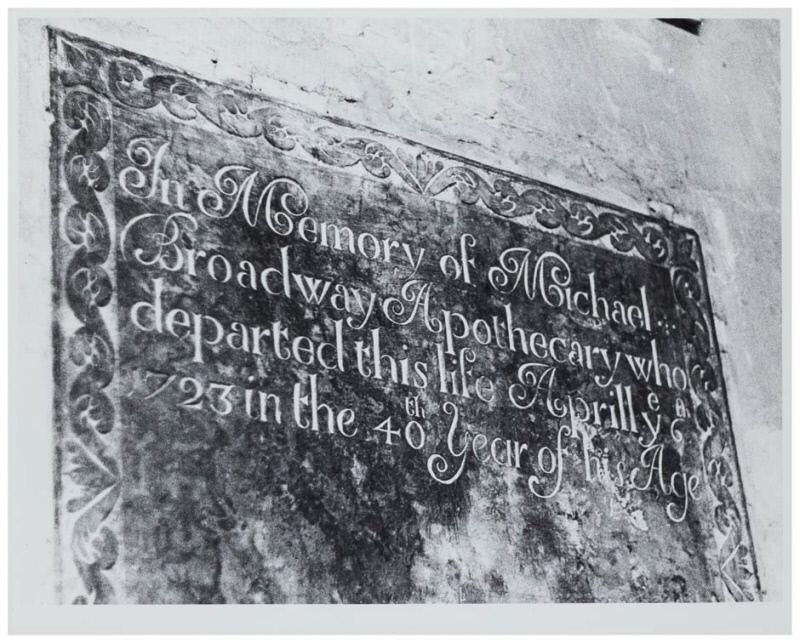 In Memory of Michael
Broadway Apothecary who
departed this life Aprill yᵉ
1723 in the 40ᵗʰ Year of his Age